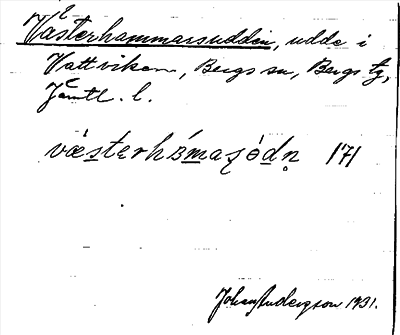 Västerhammarsudden, udde i
Hattviken, Bergs sn, Bergs tg,
Jämtl. l.
væsterhɒ́maʂódn̥ 171
Johan Anderson 1931.